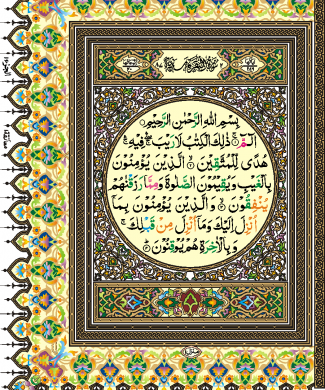 بِسْمِ اللهِ الرَّحْمٰنِ الرَّحِيْمِ
الٓمّٓ ۝ ذٰلِكَ الْكِتٰبُ لَا رَيْبَ ۛ فِيْهِ ۛ
هُدًى لِّلْمُتَّقِيْنَ ۝ الَّذِيْنَ يُؤْمِنُوْنَ
بِالْغَيْبِ وَيُقِيْمُوْنَ الصَّلٰوةَ وَمِمَّا رَزَقْنٰهُمْ
يُنْفِقُوْنَ ۝ وَالَّذِيْنَ يُؤْمِنُوْنَ بِمَآ
اُنْزِلَ اِلَيْكَ وَمَآ اُنْزِلَ مِنْ قَبْلِكَ ۚ
وَبِالْاٰخِرَةِ هُمْ يُوْقِنُوْنَ ۝